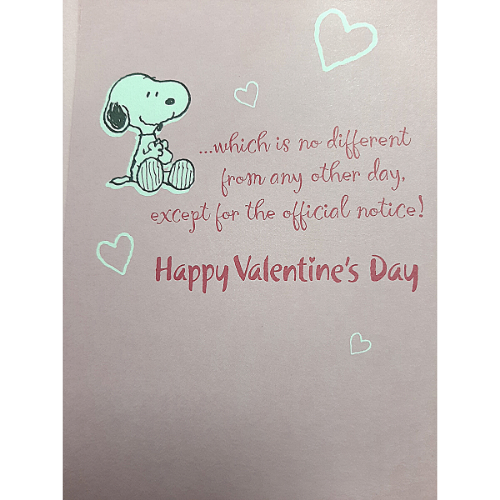 ...which is no different
from any other day,
except for the official notice!
Happy Valentine's Day